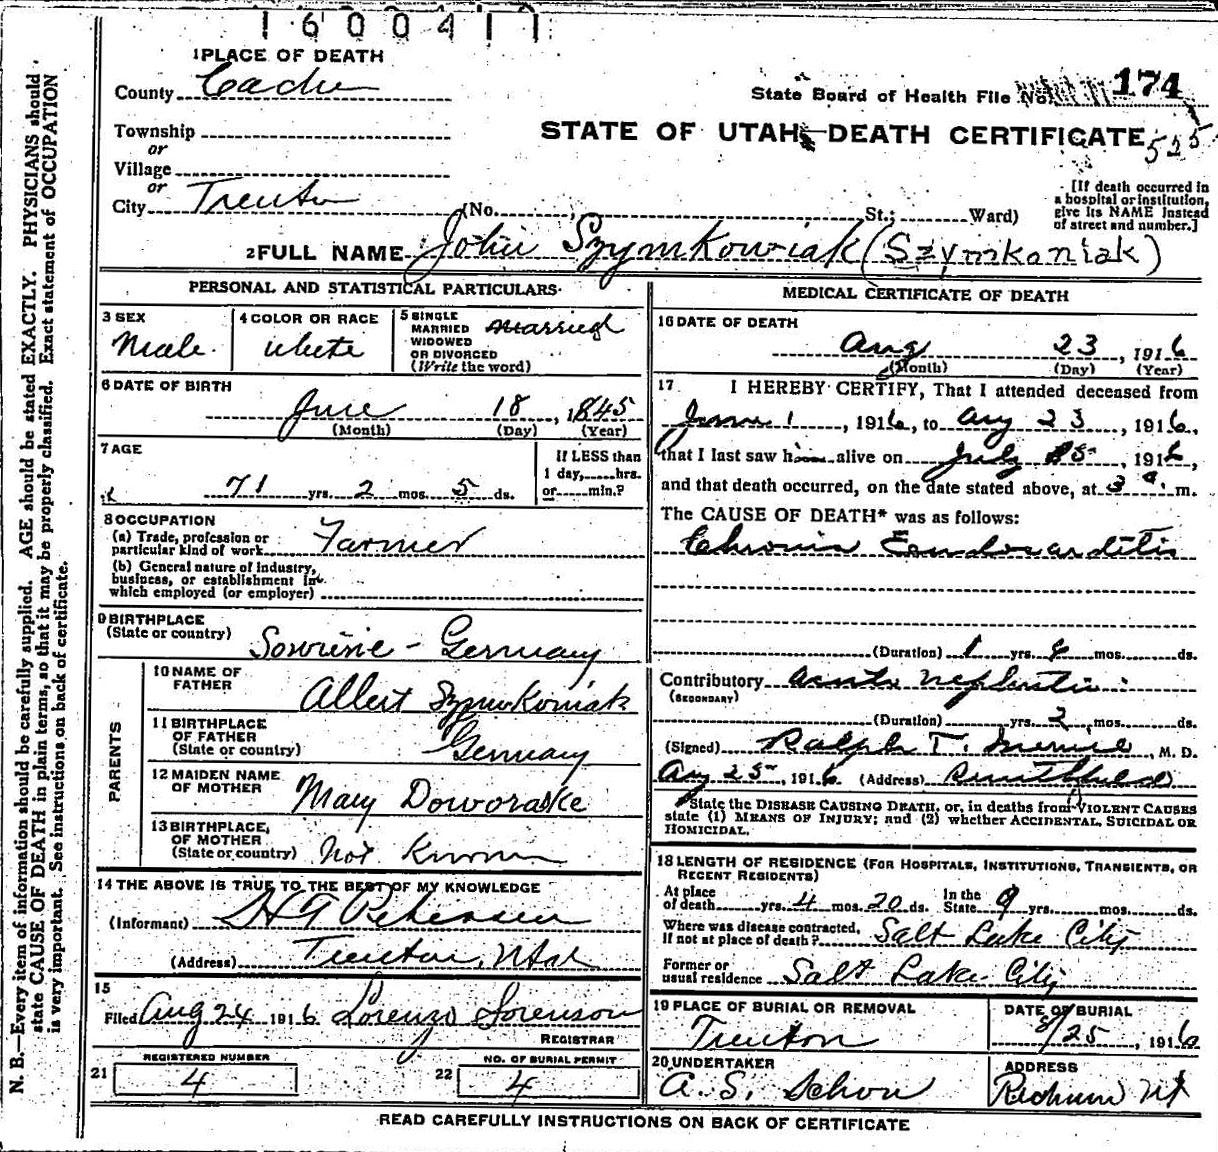 1600411
1 PLACE OF DEATH
County Cache
State Board of Health File No. 174
Township
or
Village
or
City Trenton (No. , St.; Ward)
STATE OF UTAH—DEATH CERTIFICATE
525
[If death occurred in
a hospital or institution,
give its NAME instead
of street and number.]
2 FULL NAME John Szymkowiak (Szymkaniak)
PERSONAL AND STATISTICAL PARTICULARS
3 SEX
Male
4 COLOR OR RACE
white
5 SINGLE
MARRIED
WIDOWED
OR DIVORCED
(Write the word)
Married
6 DATE OF BIRTH
June 18, 1845
(Month) (Day) (Year)
7 AGE
71 yrs. 2 mos. 5 ds.
If LESS than
1 day, hrs.
or min.?
8 OCCUPATION
(a) Trade, profession or
particular kind of work Farmer
(b) General nature of industry,
business, or establishment in
which employed (or employer)
9 BIRTHPLACE
(State or country) Germany
PARENTS
10 NAME OF
FATHER
Albert Szymkowiak
11 BIRTHPLACE
OF FATHER
(State or country) Germany
12 MAIDEN NAME
OF MOTHER Mary Doworaske
13 BIRTHPLACE,
OF MOTHER
(State or country) Not Known
14 THE ABOVE IS TRUE TO THE BEST OF MY KNOWLEDGE
(Informant) Petersen
(Address) Trenton, Utah
15
Filed Aug 24 1916 Lorenzo Sorenson
REGISTRAR
REGISTERED NUMBER
21 4
NO. OF BURIAL PERMIT
22 4
MEDICAL CERTIFICATE OF DEATH
16 DATE OF DEATH
Aug 23, 1916
(Month) (Day) (Year)
17 I HEREBY CERTIFY, That I attended deceased from
June 1, 1916, to Aug 23, 1916,
that I last saw him alive on July 25, 1916,
and that death occurred, on the date stated above, at 3 a. m.
The CAUSE OF DEATH* was as follows:
Chronic Endocarditis
(Duration) 1 yrs. 6 mos. ds.
Contributory acute nephritis
(SECONDARY)
(Duration) yrs. 2 mos. ds.
(Signed) Ralph T. , M. D.
Aug 25, 1916 (Address) Smithfield
*State the DISEASE CAUSING DEATH, or, in deaths from VIOLENT CAUSES
state (1) MEANS OF INJURY; and (2) whether ACCIDENTAL, SUICIDAL OR
HOMICIDAL.
18 LENGTH OF RESIDENCE (FOR HOSPITALS, INSTITUTIONS, TRANSIENTS, OR
RECENT RESIDENTS)
At place
of death yrs. 4 mos. 20 ds. In the
State 9 yrs. mos. ds.
Where was disease contracted,
if not at place of death? Salt Lake City
Former or
usual residence Salt Lake City
19 PLACE OF BURIAL OR REMOVAL
Trenton
DATE OF BURIAL
8/25, 1916
20 UNDERTAKER
A. S. Schow
ADDRESS
Richmond Ut
READ CAREFULLY INSTRUCTIONS ON BACK OF CERTIFICATE
N. B.—Every item of information should be carefully supplied. AGE should be stated EXACTLY. PHYSICIANS should
state CAUSE OF DEATH in plain terms, so that it may be properly classified. Exact statement of OCCUPATION
is very important. See instructions on back of certificate.